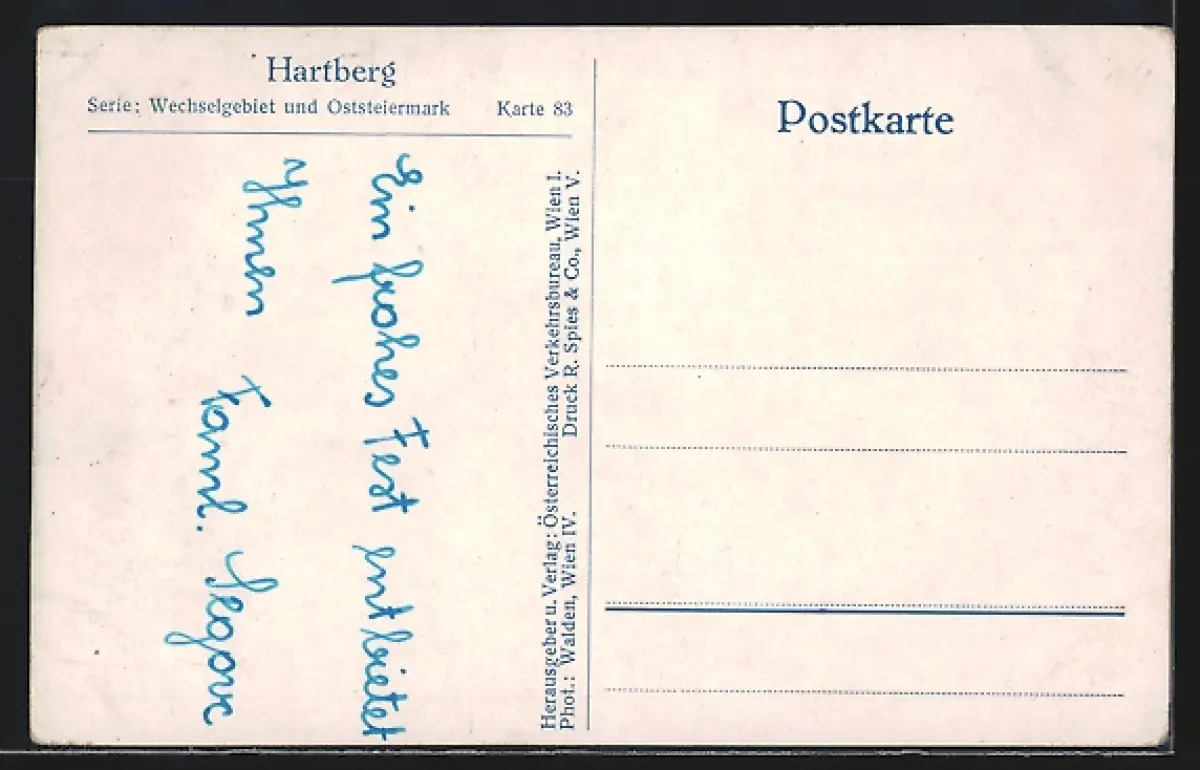 Hartberg
Serie: Wechselgebiet und Oststeiermark Karte 83
Ein frohes Fest entbietet
Ihnen Faml.
Herausgeber u. Verlag: Österreichisches Verkehrsbureau, Wien I.
Phot.: Walden, Wien IV. Druck R. Spies & Co., Wien V.
Postkarte